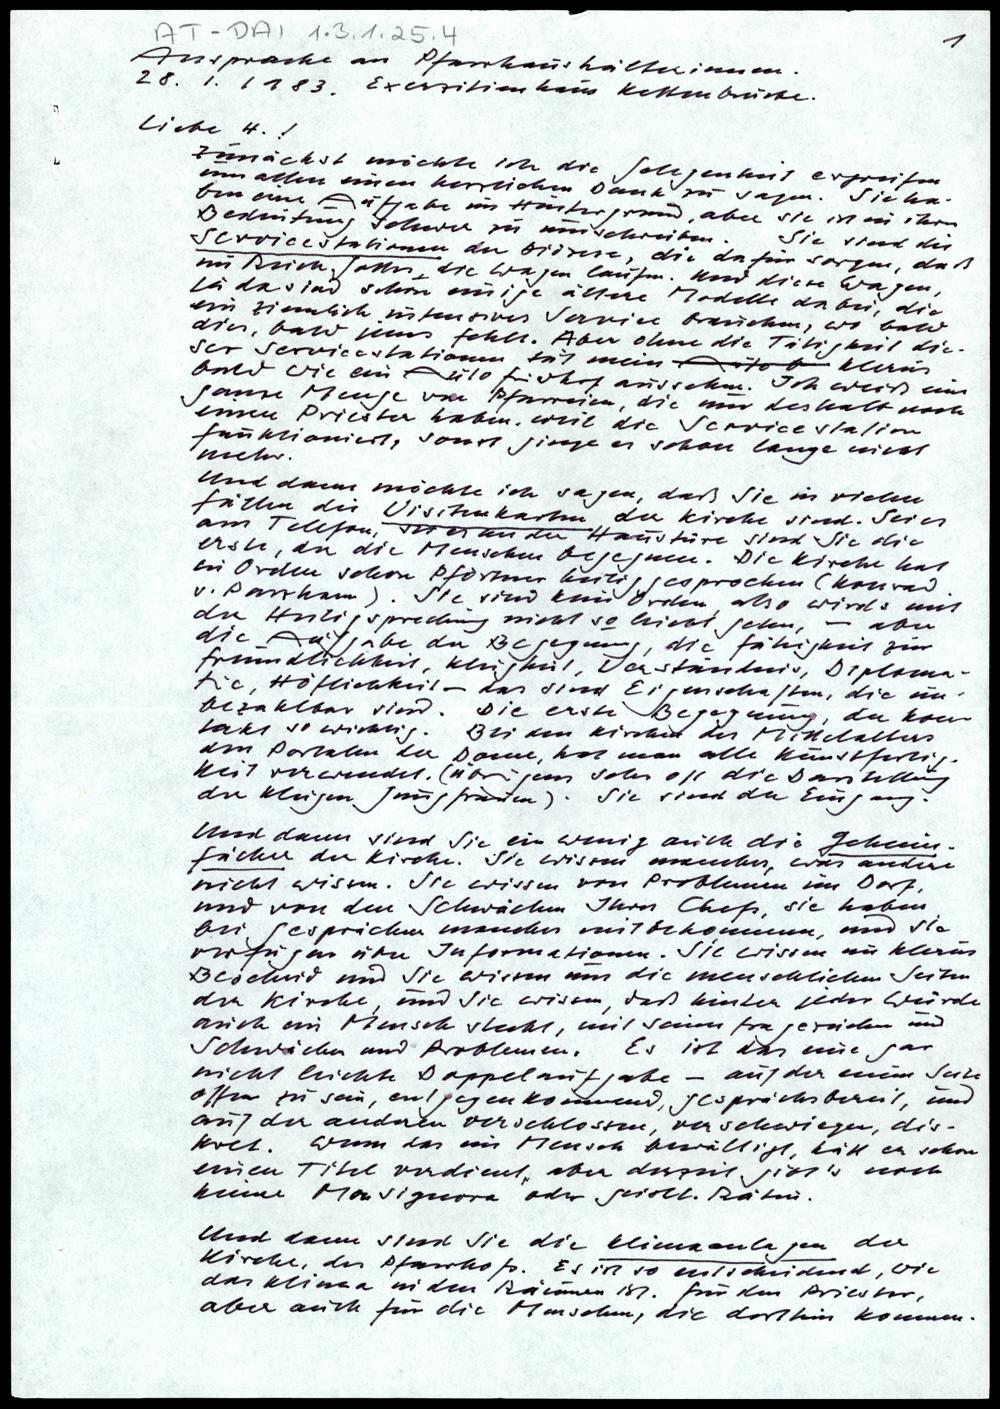 AT-DAI 1.3.1.25.4
1
Ansprache an Pfarrhaushälterinnen.
28. 1. 1983. Exerzitienhaus Kettenbrücke.
Liebe H.!
Zunächst möchte ich die Gelegenheit ergreifen
um allen einen herzlichen Dank zu sagen. Sie ha-
ben eine Aufgabe im Hintergrund, aber sie ist in ihrer
Bedeutung schwer zu umschreiben. Sie sind die
Servicestationen der Diözese, die dafür sorgen, daß
im Reich Gottes die Wagen laufen. Und diese Wagen,
ja da sind schon einige ältere Modelle dabei, die
ein ziemlich intensives Service brauchen, wo bald
dies, bald jenes fehlt. Aber ohne die Tätigkeit die-
ser Servicestationen tät mein Klerus
bald wie ein Autofriedhof aussehen. Ich weiß eine
ganze Menge von Pfarreien, die nur deshalb noch
einen Priester haben, weil die Servicestation
funktioniert, sonst ginge es schon lange nicht
mehr.
Und dann möchte ich sagen, daß Sie in vielen
Fällen die Visitenkarten der Kirche sind. Sei es
am Telefon, sei es an der Haustüre sind Sie die
erste, der die Menschen begegnen. Die Kirche hat
in Orden schon Pförtner heiliggesprochen (Konrad
v. Parzham). Sie sind kein Orden, also wirds mit
der Heiligsprechung nicht so leicht gehen, – aber
die Aufgabe der Begegnung, die Fähigkeit zur
Freundlichkeit, Klugheit, Verständnis, Diploma-
tie, Höflichkeit – das sind Eigenschaften, die un-
bezahlbar sind. Die erste Begegnung, der Kon-
takt so wichtig. Bei den Kirchen des Mittelalters
den Portalen der Dome, hat man alle Kunstfertig-
keit verwendet. (Übrigens sehr oft die Darstellung
der klugen Jungfrauen). Sie sind der Eingang.
Und dann sind Sie ein wenig auch die Geheim-
fächer der Kirche. Sie wissen manches, was andere
nicht wissen. Sie wissen von Problemen im Dorf,
und von den Schwächen Ihres Chefs, sie haben
bei Gesprächen manches mitbekommen, und sie
verfügen über Informationen. Sie wissen im Klerus
Bescheid und Sie wissen um die menschlichen Seiten
der Kirche, und Sie wissen, daß hinter jeder Würde
auch ein Mensch steckt, mit seinen Fragezeichen und
Schwächen und Problemen. Es ist das eine gar
nicht leichte Doppelaufgabe – auf der einen Seite
offen zu sein, entgegenkommend, gesprächsbereit, und
auf der anderen verschlossen, verschwiegen, dis-
kret. Wenn das ein Mensch bewältigt, hätt er schon
einen Titel verdient, aber derzeit gibt's noch
keine Monsignora oder geistl. Rätin.
Und dann sind Sie die Klimaanlagen der
Kirche, des Pfarrhofs. Es ist so entscheidend, wie
das Klima in den Räumen ist. Für den Priester,
aber auch für die Menschen, die dorthin kommen.